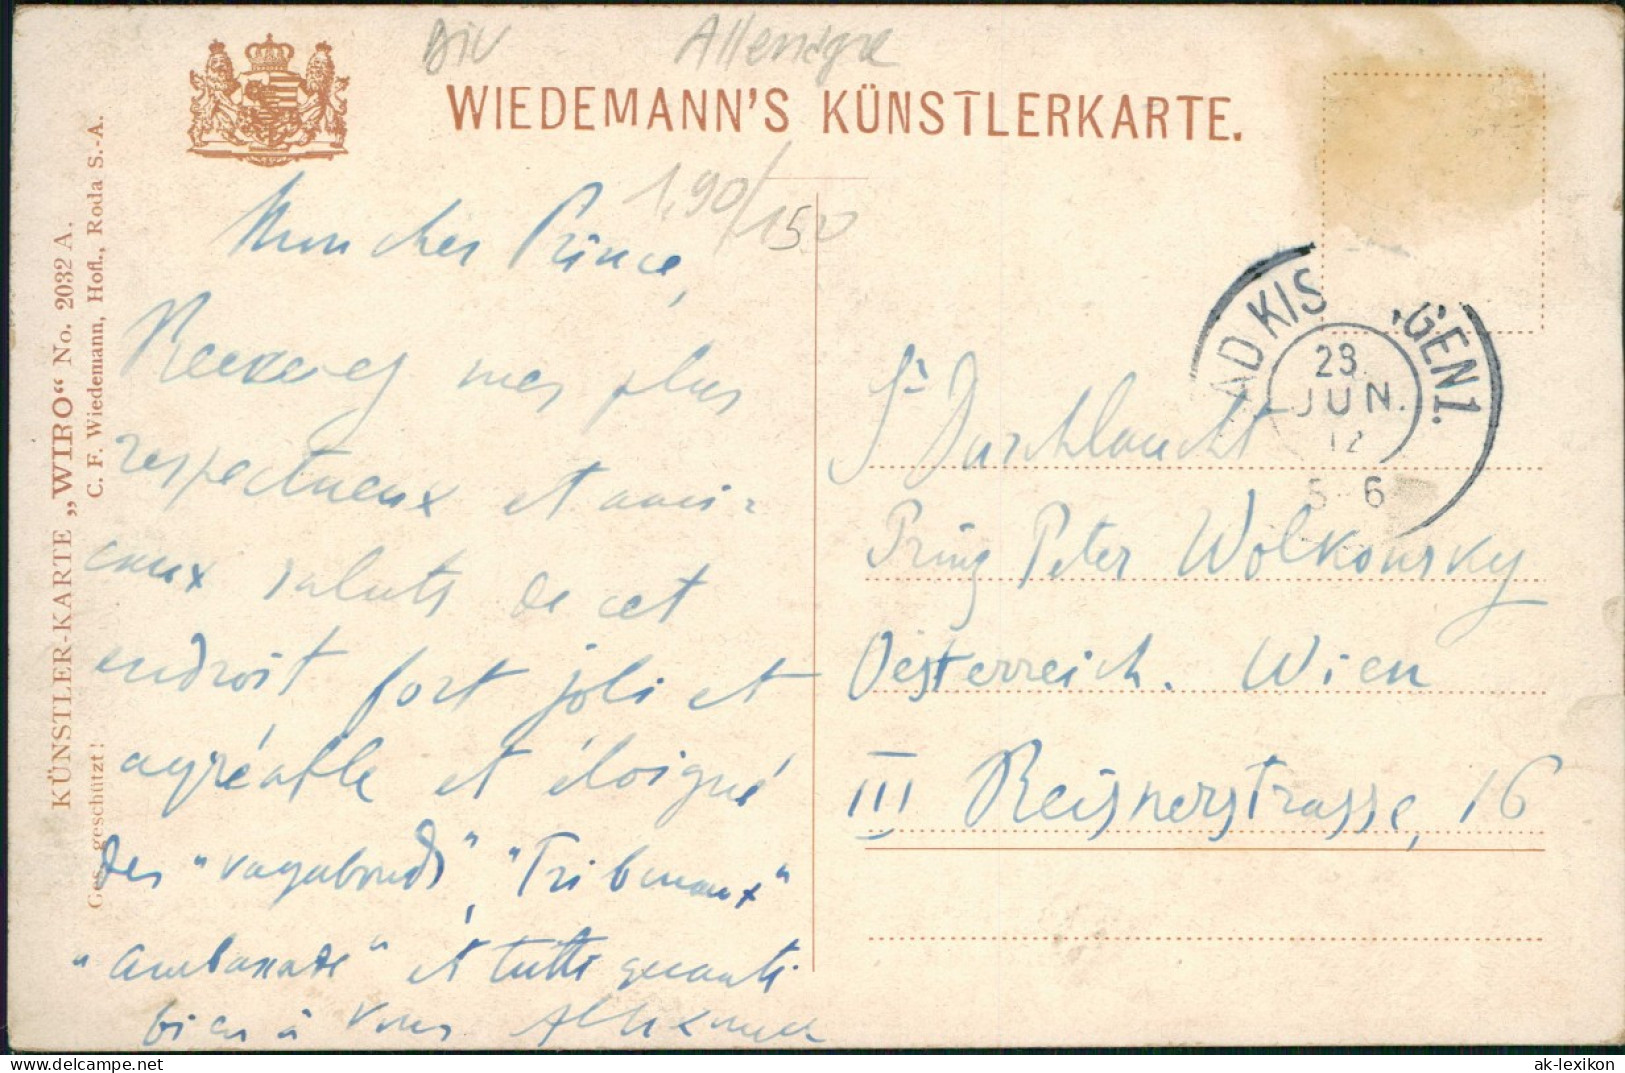 Div Allemagne
WIEDEMANN'S KÜNSTLERKARTE.
KÜNSTLER-KARTE „WIRO“ No. 2032 A.
C. F. Wiedemann, Hofl., Roda S.-A.
Ges. geschützt!
1,90/150
Mon cher Prince,
Recevez mes plus
respectueux et ami-
caux saluts de cet
endroit fort joli et
agréable et éloigné
des "vagabonds", "Tribunaux"
"Ambassade" et tutti quanti
bien à vous
BAD KISSINGEN 1.
23.
JUN.
12
5-6
Sr Durchlaucht
Prinz Peter Wolkonsky
Oesterreich. Wien
III Reisnerstrasse, 16
ak-lexikon